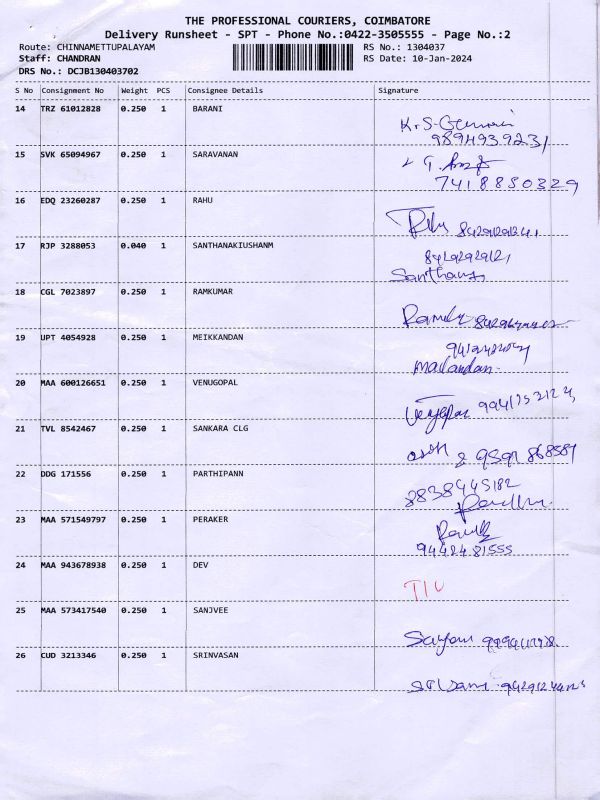 THE PROFESSIONAL COURIERS, COIMBATORE
Delivery Runsheet - SPT - Phone No.:0422-3505555 - Page No.:2
Route: CHINNAMETTUPALAYAM RS No.: 1304037
Staff: CHANDRAN RS Date: 10-Jan-2024
DRS No.: DCJB130403702
S No Consignment No Weight PCS Consignee Details Signature
14 TRZ 61012828 0.250 1 BARANI
9894939231
15 SVK 65094967 0.250 1 SARAVANAN
7418850329
16 EDQ 23260287 0.250 1 RAHU
17 RJP 3288053 0.040 1 SANTHANAKIUSHANM
18 CGL 7023897 0.250 1 RAMKUMAR
19 UPT 4054928 0.250 1 MEIKKANDAN
20 MAA 600126651 0.250 1 VENUGOPAL
21 TVL 8542467 0.250 1 SANKARA CLG
22 DDG 171556 0.250 1 PARTHIPANN
8838445182
23 MAA 571549797 0.250 1 PERAKER
9442481555
24 MAA 943678938 0.250 1 DEV
25 MAA 573417540 0.250 1 SANJVEE
26 CUD 3213346 0.250 1 SRINVASAN